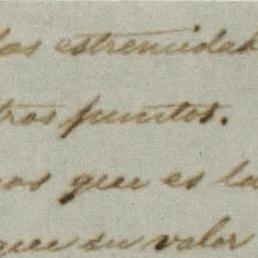 las estremidad
tros puntos.
nos que es la
que su valor